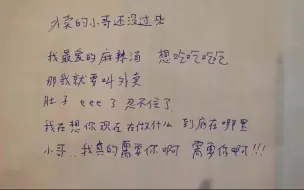 外卖的小哥还没过来
我最爱的麻辣汤 想吃吃吃吃
那我就要叫外卖
肚子eee了忍不住了
我在想你现在在做什么 到底在哪里
小哥..我真的需要你啊 需要你啊!!!